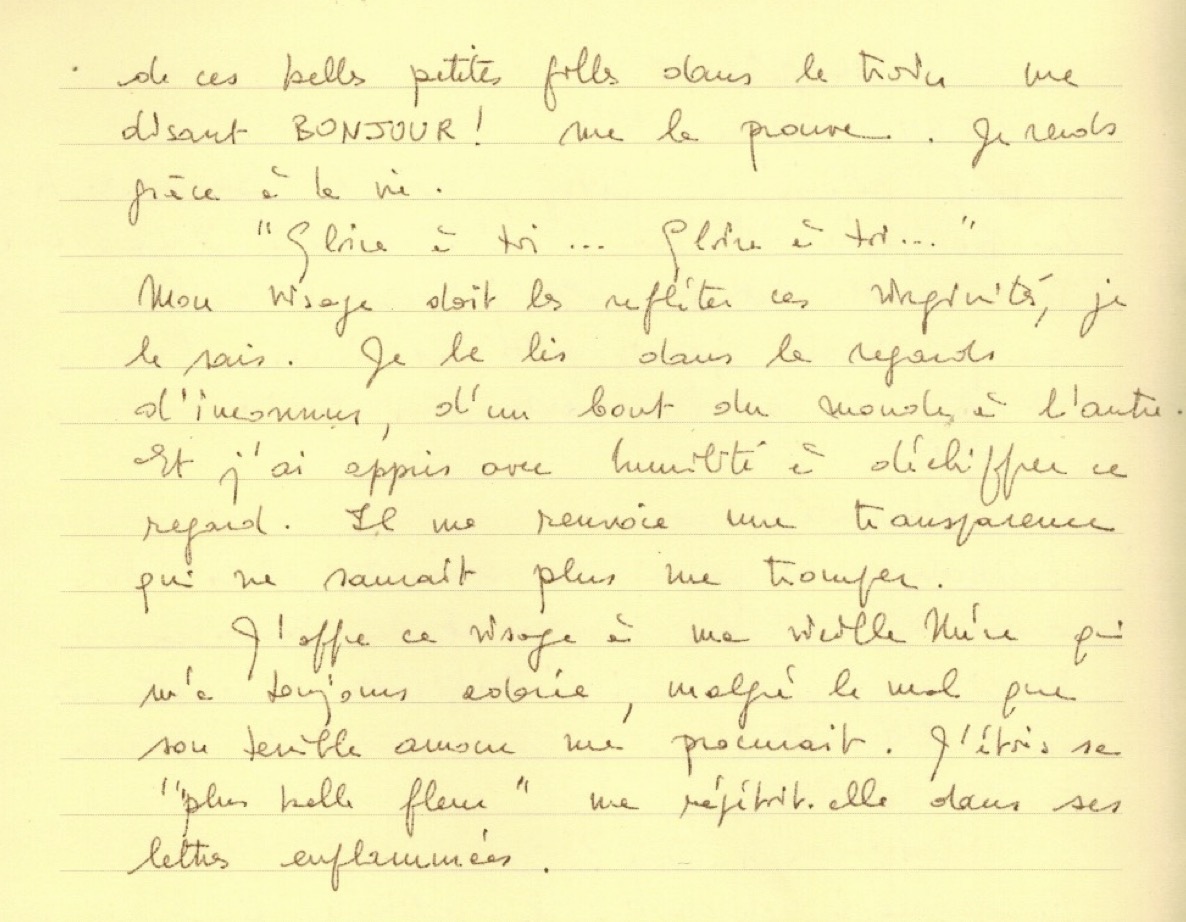 de ces belles petites filles dans le train me
disant BONJOUR! me le prouve. Je rends
grâce à la vie.
"Gloire à toi... Gloire à toi..."
Mon visage doit les refléter ces virginités, je
le sais. Je le lis dans le regards
d'inconnus, d'un bout du monde à l'autre.
Et j'ai appris avec humilité à déchiffrer ce
regard. Il me renvoie une transparence
qui ne saurait plus me tromper.
J'offre ce visage à ma vieille Mère qui
m'a toujours adorée, malgré le mal que
son terrible amour me procurait. J'étais sa
"plus belle fleur" me répétait-elle dans ses
lettres enflammées.